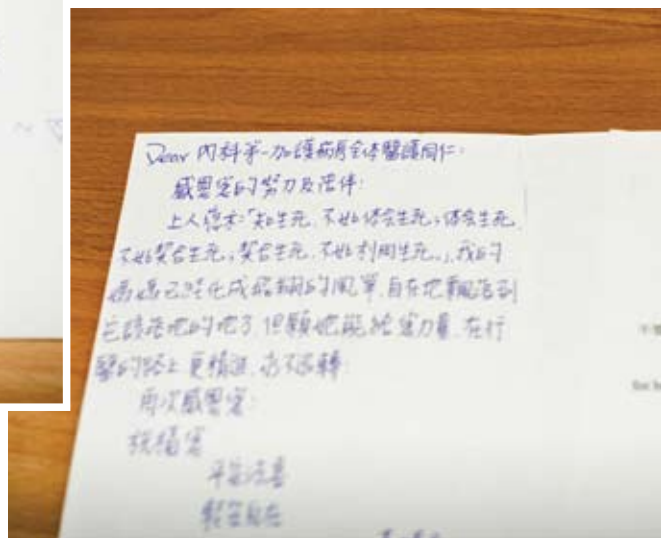 Dear 內科第一加護病房全体醫護同仁:
感恩您的努力及陪伴:
上人德示:「知生死,不如体会生死;体会生死,
不如契合生死;契合生死,不如利用生死。」我的
媽媽已經化成 的風箏,自在地乘風
它該落地的地方,但願她能給您力量,在行
醫的路上更精進,永不退轉
再次感恩您:
祝福您
平安法喜
輕安自在